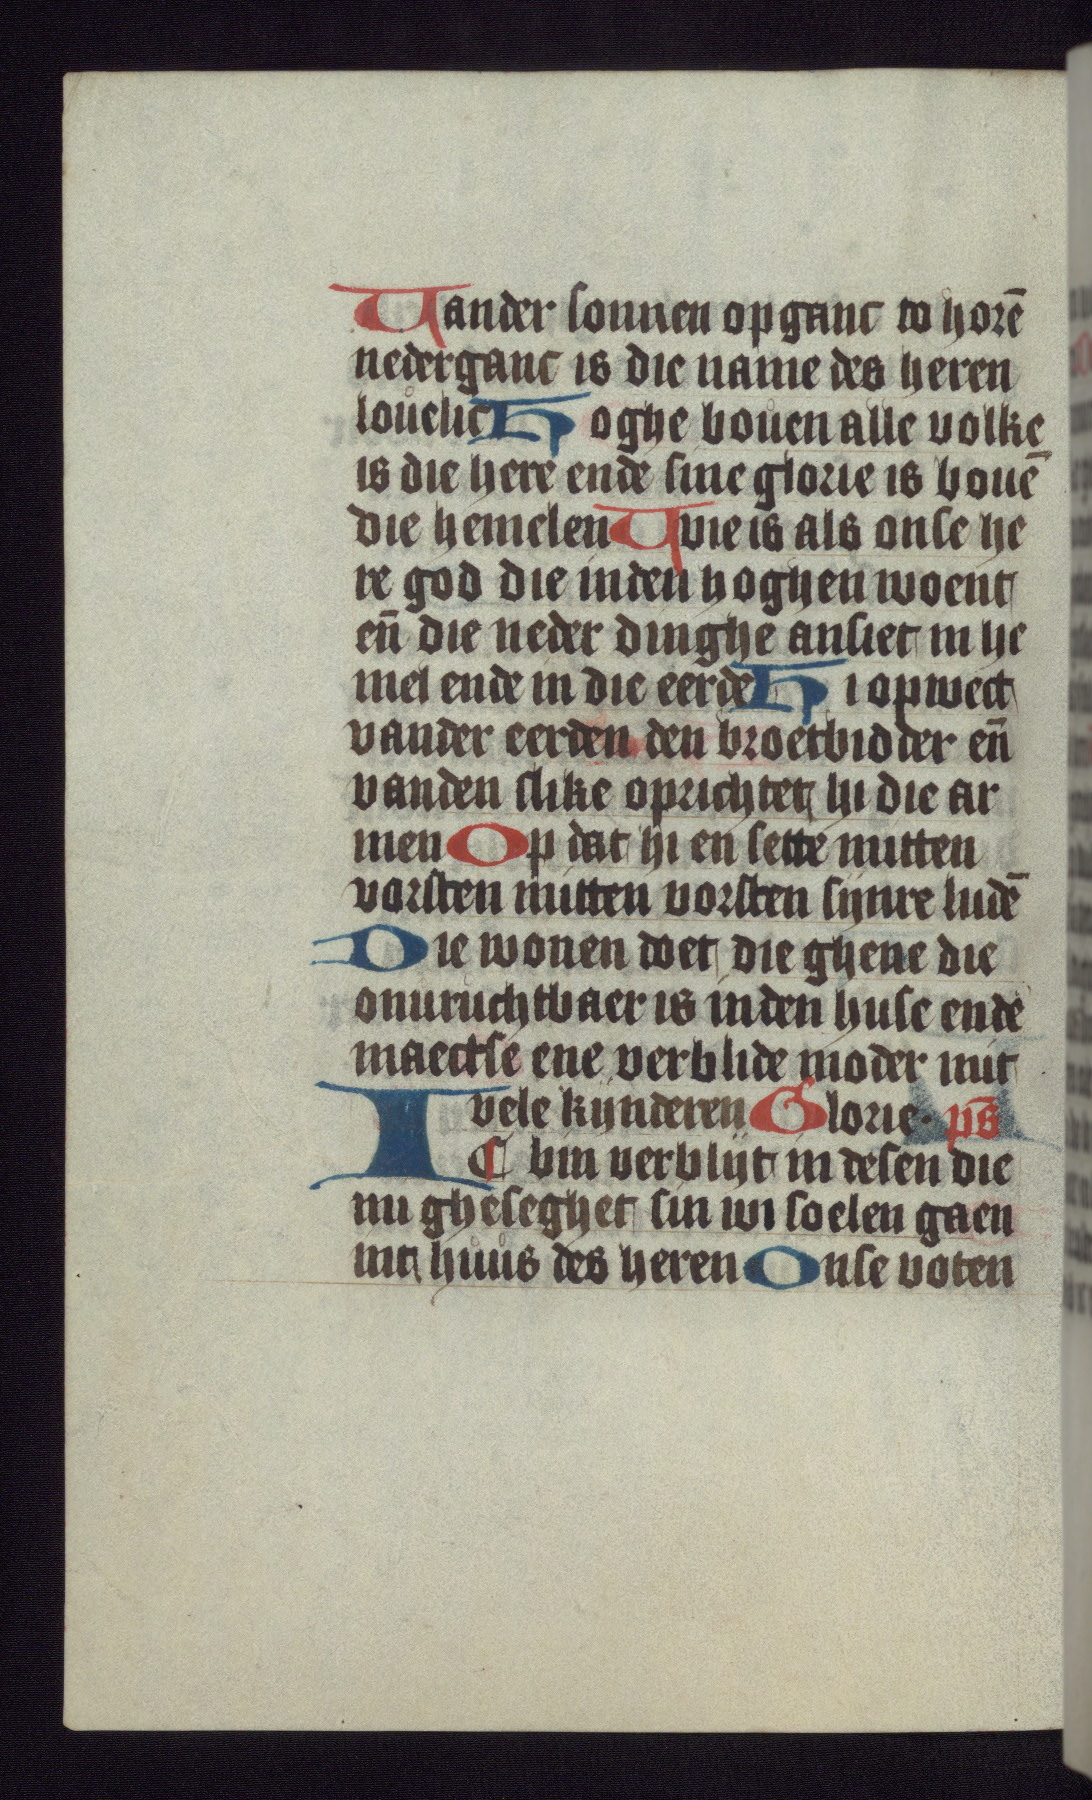 Vander sonnen opganc to horē
nederganc is die name des heren
louelic Hoghe bouen alle volke
is die here ende sine glorie is bouē
die hemelen Wie is als onse he
re god die inden hoghen woent
en̄ die neder dinghe ansiet in he
mel ende in die eerde Hi opwect
vander eerden den broetbidder en̄
vanden slike oprichtet hi die ar
men Op dat hi en sette mitten
vorsten mitten vorsten sijnre ludē
Die wonen doet die ghene die
onuruchtbaer is inden huse ende
maectse ene verblide moder mit
vele kijnderen Glorie. p̄s
IC bin verblijt in desen die
mi gheseghet sin wi soelen gaen
int huus des heren Onse voten